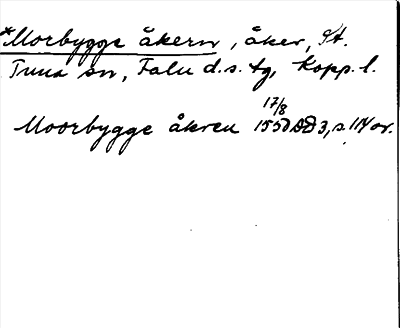 *Morbygge åkern, åker, St.
Tuna sn, Falu d.s. tg, Kopp. l.
17/8
Moorbygge åkren 1550 DD 3, s. 114 or.